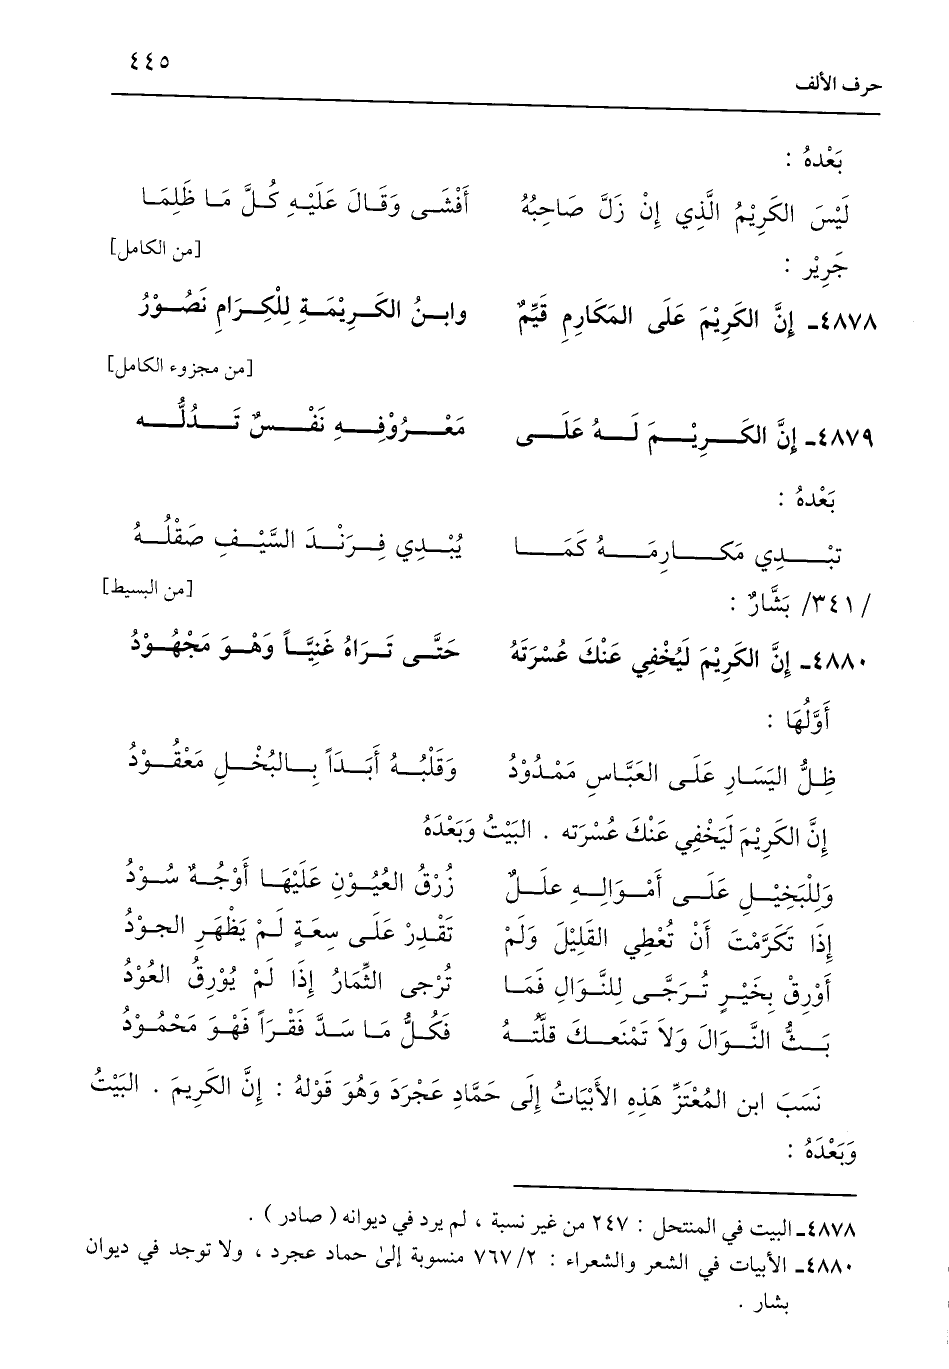 ٤٤٥
حرف الألف
بَعْدهُ :
لَيْسَ الكَرِيْمُ الَّذِي إِنْ زَلَّ صَاحِبُهُ أَفْشَى وَقَالَ عَلَيْهِ كُلَّ مَا ظَلِمَا
جَرِيْر : [من الكامل]
٤٨٧٨ـ إِنَّ الكَرِيْمَ عَلَى المَكَارِمِ قَيِّمٌ وابنُ الكَرِيْمَةِ لِلْكِرَامِ نَصُوْرُ
[من مجزوء الكامل]
٤٨٧٩ـ إِنَّ الكَرِيْمَ لَهُ عَلَى مَعْرُوْفِهِ نَفْسٌ تَدُلُّه
بَعْدهُ :
تبْدِي مَكَارِمَهُ كَمَا يُبْدِي فِرَنْدَ السَّيْفِ صَقْلُهُ
/٣٤١/ بَشَّارٌ : [من البسيط]
٤٨٨٠ـ إِنَّ الكَرِيْمَ لَيُخْفِي عَنْكَ عُسْرَتَهُ حَتَّى تَرَاهُ غَنِيَّاً وَهْوَ مَجْهُوْدُ
أَوَّلُهَا :
ظِلُّ اليَسَارِ عَلَى العَبَّاسِ مَمْدُوْدُ وَقَلْبُهُ أَبَدَاً بِالبُخْلِ مَعْقُوْدُ
إِنَّ الكَرِيْمَ لَيَخْفِي عَنْكَ عُسْرَته . البَيْتُ وَبَعْدَهُ
وَلِلْبَخِيْلِ عَلَى أَمْوَالِهِ عِلَلٌ زُرْقُ العُيُوْنِ عَلَيْهَا أَوْجُهٌ سُوْدُ
إِذَا تَكَرَّمْتَ أَنْ تُعْطِي القَلِيْلَ وَلَمْ تَقْدِرْ عَلَى سِعَةٍ لَمْ يَظْهَرِ الجوْدُ
أَوْرِقْ بِخَيْرٍ تُرَجَّى لِلنَّوَالِ فَمَا تُرْجَى الثِّمَارُ إِذَا لَمْ يُوْرِقُ العُوْدُ
بَثُّ النَّوَالَ وَلاَ تَمْنَعكَ قلَّتُهُ فَكُلُّ مَا سَدَّ فَقْرَاً فَهْوَ مَحْمُوْدُ
نَسَبَ ابن المُعْتَزِّ هَذِهِ الأَبْيَاتُ إِلَى حَمَّادِ عَجْرَدَ وَهُوَ قَوْلهُ : إِنَّ الكَرِيمَ . البَيْتُ
وَبَعْدَهُ :
٤٨٧٨ـ البيت في المنتحل : ٢٤٧ من غير نسبة ، لم يرد في ديوانه ( صادر ) .
٤٨٨٠ـ الأبيات في الشعر والشعراء : ٧٦٧/٢ منسوبة إلىٰ حماد عجرد ، ولا توجد في ديوان
بشار .